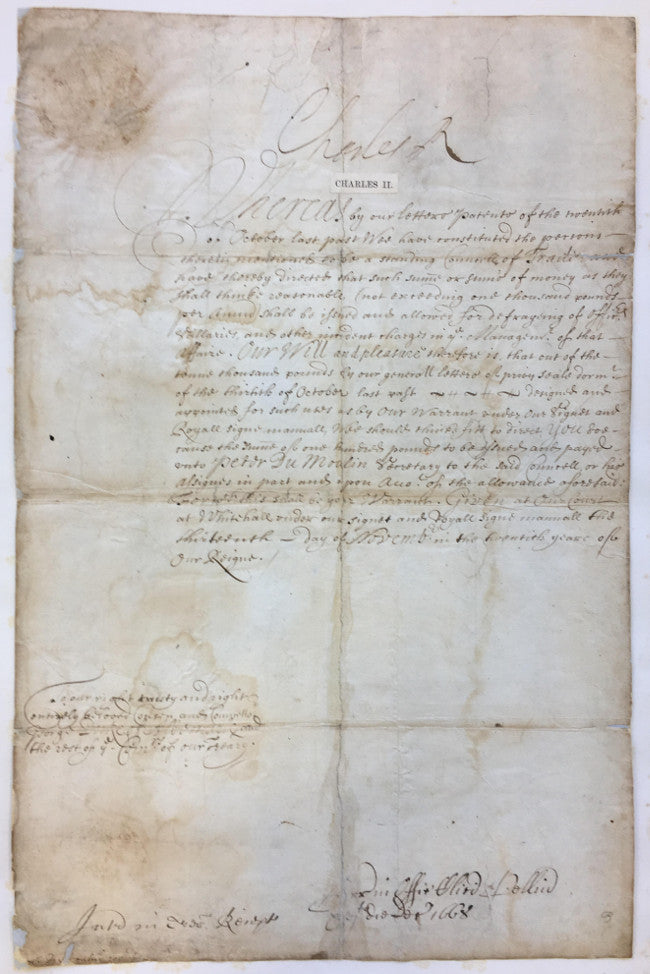 Charles R
CHARLES II.
Whereas by our letters Patents of the twentith
of October last past Wee have constituted the persons
therein mentioned to be a standing Councell of Trade and
have thereby directed that such sume or sums of money as they
shall thinke reasonable (not exceeding one thousand pounds
per Annũ shall be issued and allowed for defraying of Offic:rs
Sallaries, and other incident charges in ye Managemt. of that
Affaire. Our Will and pleasure therefore is, that out of the
tenne thousand pounds by our generall letters of privy seale dormt
of the thirtith of October last past designed and
appointed for such uses as by Our Warrant under Our Signet and
Royall signe manuall Wee should thinke fitt to direct YOU doe
cause the sume of one hundred pounds to be issued and payed
unto Peter Du Moulin Secretary to the said Councell, or his
Assignes in part and upon Acco. of the allowance aforesaid.
For wch this shalbe yor Warrant. Given at Our Court
at Whitehall under our signet and Royall signe manuall the
thirteenth day of Novembr. in the twentith yeare of
Our Reigne.
To our right trusty and right
entirely beloved Cousin and Councellor
George
the rest of ye. Comrs of our Treary.
1668
Recept